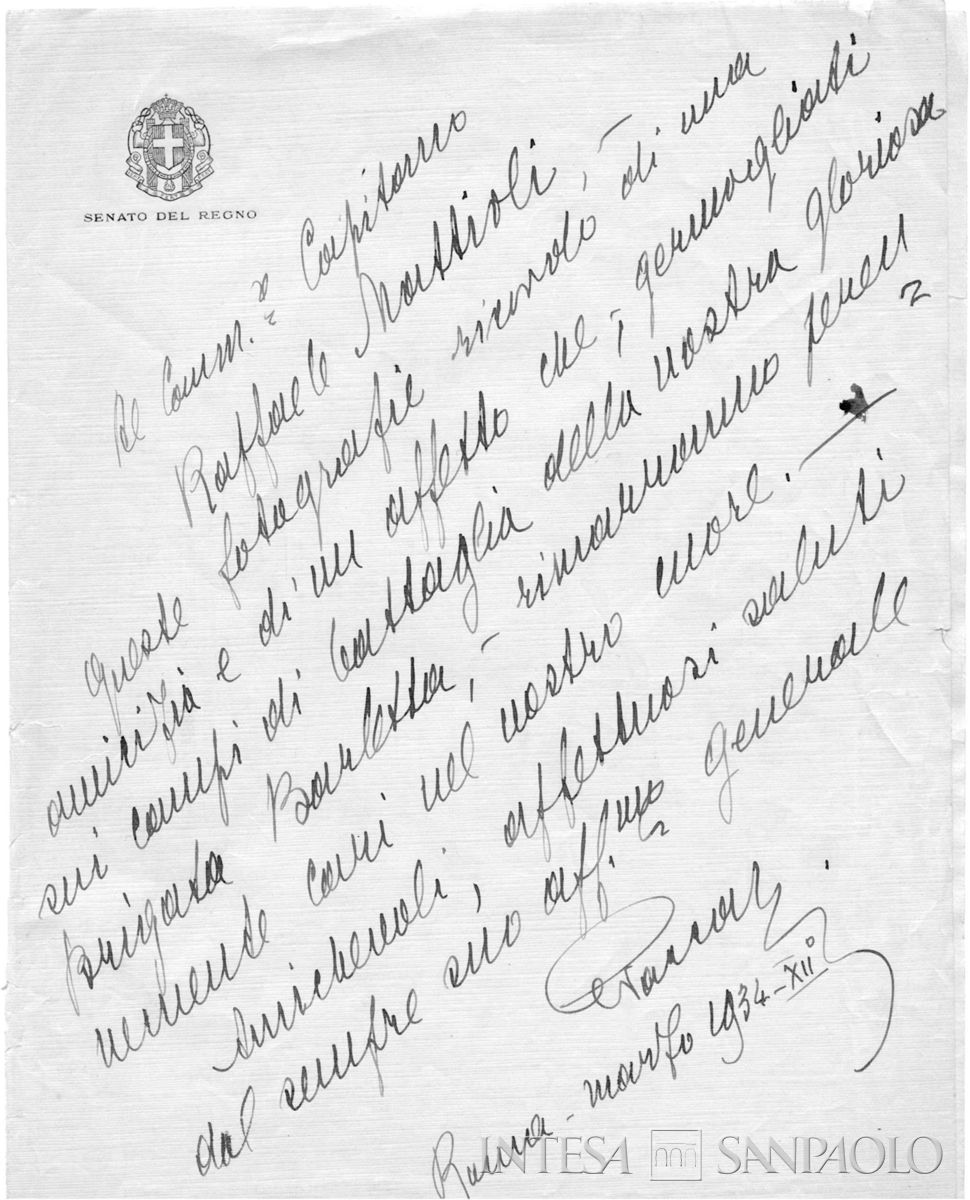 SENATO DEL REGNO
Al Comm.re Capitano
Raffaele Mattioli, –
queste fotografie ricordo di una
amicizia e di un affetto che, germogliati
sui campi di battaglia della nostra gloriosa
brigata Barletta, – rimarranno peren
nemente cari nel nostro cuore. –
Amichevoli, affettuosi saluti
dal sempre suo aff.mo generale
Roma – marzo 1934–XII°
INTESA SANPAOLO